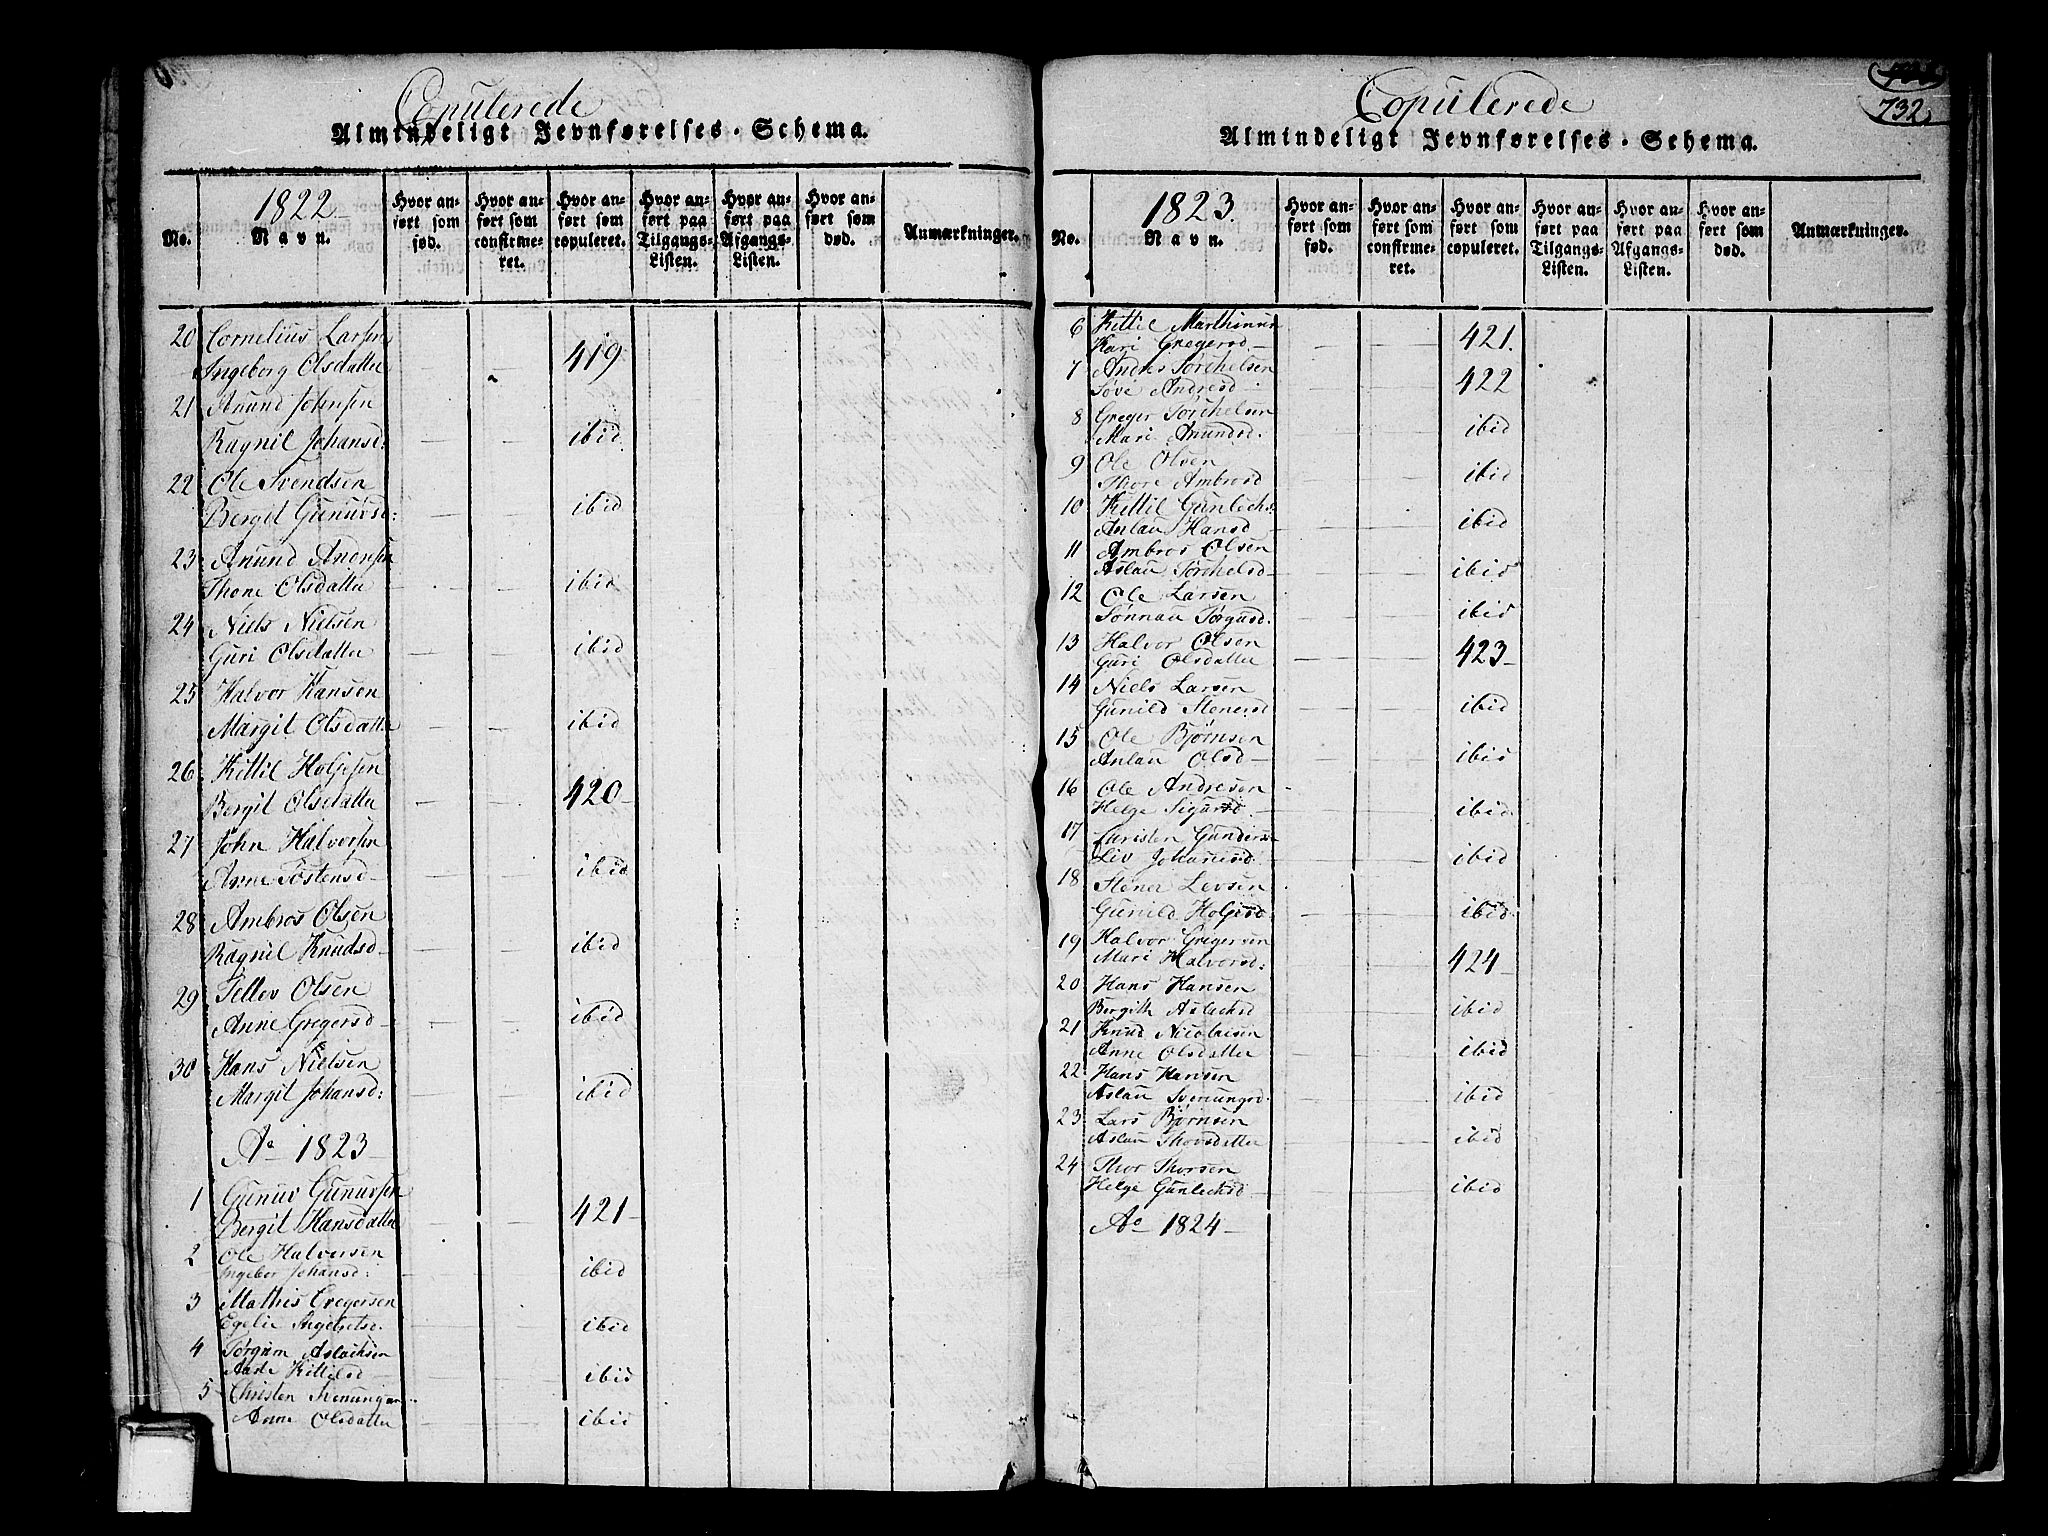 Copulerede
Almindeligt Jevnførelses-Schema.
No.
1822
Navn.
Hvor anført som fød.
Hvor anført som confirmeret.
Hvor anført som copuleret.
Hvor anført paa Tilgangs-Listen.
Hvor anført paa Afgangs-Listen.
Hvor anført som død.
Anmærkninger.
20 Cornelius Larsen
Ingeborg Olsdatter 419
21 Anund Johnsen
Ragnil Johansd: ibid
22 Ole Svendsen
Bergit Gunuvsd: ibid
23 Anund Andersen
Thone Olsdatter ibid
24 Niels Nielsen
Guri Olsdatter ibid
25 Halvor Hansen
Margit Olsdatter ibid
26 Kittil Holjesen
Bergit Olsdatter 420
27 John Halvorsen
Anne Tostensd ibid
28 Ambros Olsen
Ragnil Knudsd ibid
29 Tellev Olsen
Anne Gregersd ibid
30 Hans Nielsen
Margit Johansd: ibid
Ao 1823
1 Gunuv Gunuvsen
Bergit Hansdatter 421
2 Ole Halvorsen
Ingebor Johansd: ibid
3 Mathis Gregersen
Egelie ibid
4 Torgrim Aslachsen
Aasle Kittelsd ibid
5 Christen
Anne Olsdatter ibid
Copulerede
732
Almindeligt Jevnførelses-Schema.
No.
1823.
Navn.
Hvor anført som fød.
Hvor anført som confirmeret.
Hvor anført som copuleret.
Hvor anført paa Tilgangs-Listen.
Hvor anført paa Afgangs-Listen.
Hvor anført som død.
Anmærkninger.
6 Kittil
Kari Gregersd. 421.
7 Andres Torchelsen
Tove Andresd 422
8 Greger Torchelsen
Mari Anundsd. ibid
9 Ole Olsen
Thore Ambrosd ibid
10 Kittil Gunlechs.
Anlau Hansd ibid
11 Ambros Olsen
Aslau Torchelsd ibid
12 Ole Larsen
Sønnau ibid
13 Halvor Olsen
Guri Olsdatter 423
14 Niels Larsen
Gunild Stenersd ibid
15 Ole Bjørnsen
Anlau Olsd ibid
16 Ole Andresen
Helge Sigursd. ibid
17 Christen Gunders.
Liv ibid
18 Stener Levsen
Gunild Holjesd: ibid
19 Halvor Gregersen
Mari Halvorsd: 424
20 Hans Hansen
Bergith Aslachsd ibid
21 Knud Nicolaisen
Anne Olsdatter ibid
22 Hans Hansen
Aslau Svenungsd. ibid
23 Lars Bjørnsen
Aslau Thorsdatter ibid
24 Thor Thorsen
Helge Gunlechsd ibid
Ao 1824